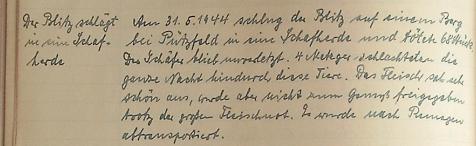 Der Blitz schlägt
in eine Schaf-
herde
Am 31.5.1944 schlug der Blitz auf einem Berg
bei Pützfeld in eine Schafherde und tötete 68 Stück.
Der Schäfer blieb unverletzt. 4 Metzger schlachteten die
ganze Nacht hindurch diese Tiere. Das Fleisch sah sehr
schön aus, wurde aber nicht zum Genuß freigegeben
trotz der großen Fleischnot. Es wurde nach Remagen
abtransportiert.